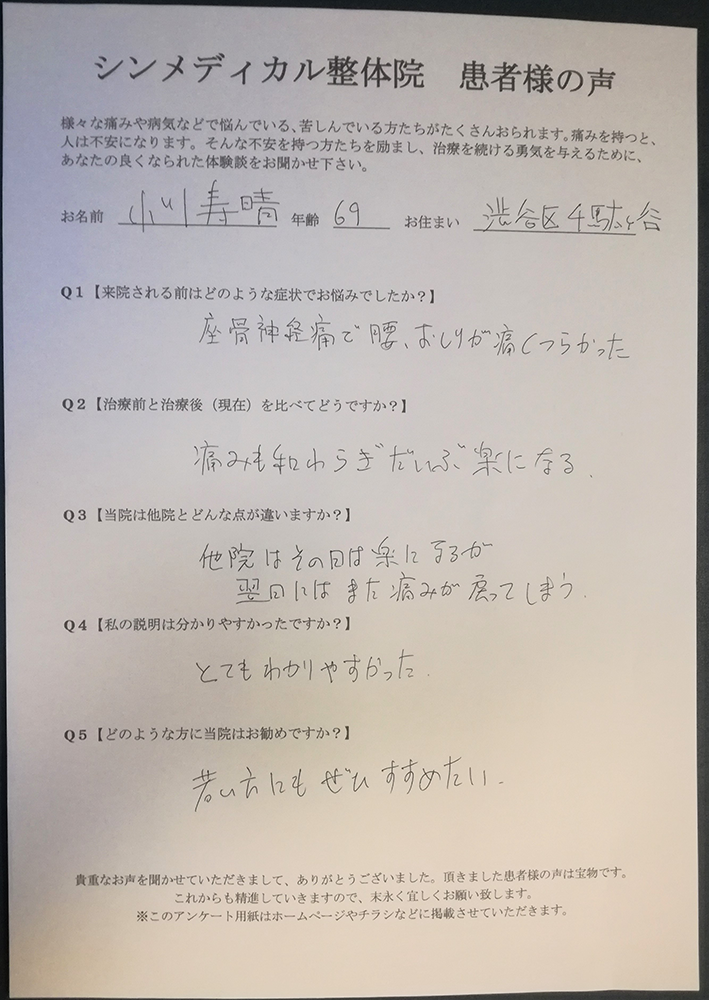 シンメディカル整体院　患者様の声
様々な痛みや病気などで悩んでいる、苦しんでいる方たちがたくさんおられます。痛みを持つと、
人は不安になります。そんな不安を持つ方たちを励まし、治療を続ける勇気を与えるために、
あなたの良くなられた体験談をお聞かせ下さい。
お名前　小川寿晴　年齢　69　お住まい　渋谷区千駄ヶ谷
Q1【来院される前はどのような症状でお悩みでしたか？】
座骨神経痛で腰、おしりが痛くつらかった
Q2【治療前と治療後（現在）を比べてどうですか？】
痛みも和わらぎだいぶ楽になる.
Q3【当院は他院とどんな点が違いますか？】
他院はその日は楽になるが
翌日にはまた痛みが戻ってしまう.
Q4【私の説明は分かりやすかったですか？】
とてもわかりやすかった.
Q5【どのような方に当院はお勧めですか？】
若い方にもぜひすすめたい.
貴重なお声を聞かせていただきまして、ありがとうございました。頂きました患者様の声は宝物です。
これからも精進していきますので、末永く宜しくお願い致します。
※このアンケート用紙はホームページやチラシなどに掲載させていただきます。